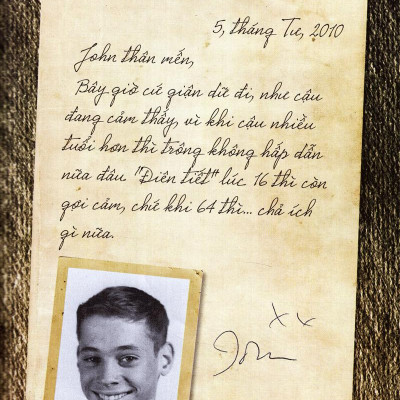 5, tháng Tư, 2010
John thân mến,
Bây giờ cứ giận dữ đi, như cậu
đang cảm thấy, vì khi cậu nhiều
tuổi hơn thì trông không hấp dẫn
nữa đâu "Điên tiết" lúc 16 thì còn
gợi cảm, chứ khi 64 thì... chả ích
gì nữa.
xx
John